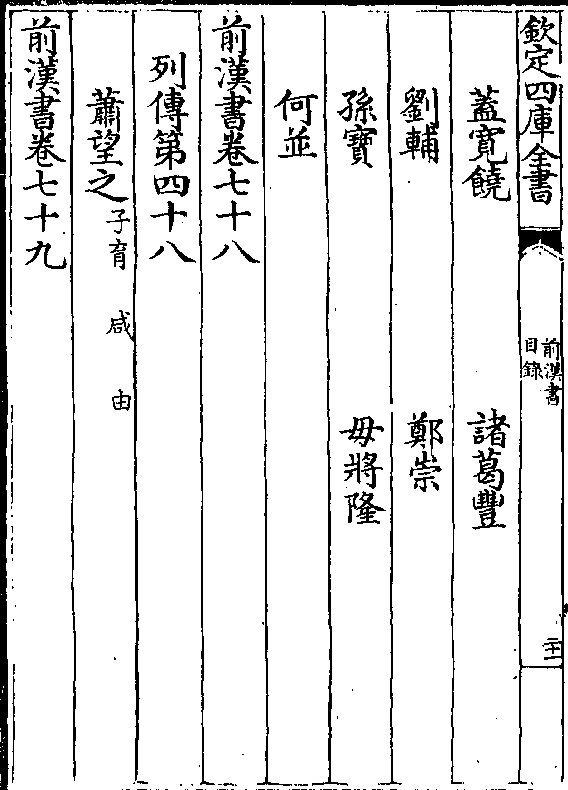 欽定四庫全書
前漢書
目錄
二十一
蓋寬饒 諸葛豐
劉輔 鄭崇
孫寶 毋將隆
何並
前漢書卷七十八
列傳第四十八
蕭望之子育 咸 由
前漢書卷七十九